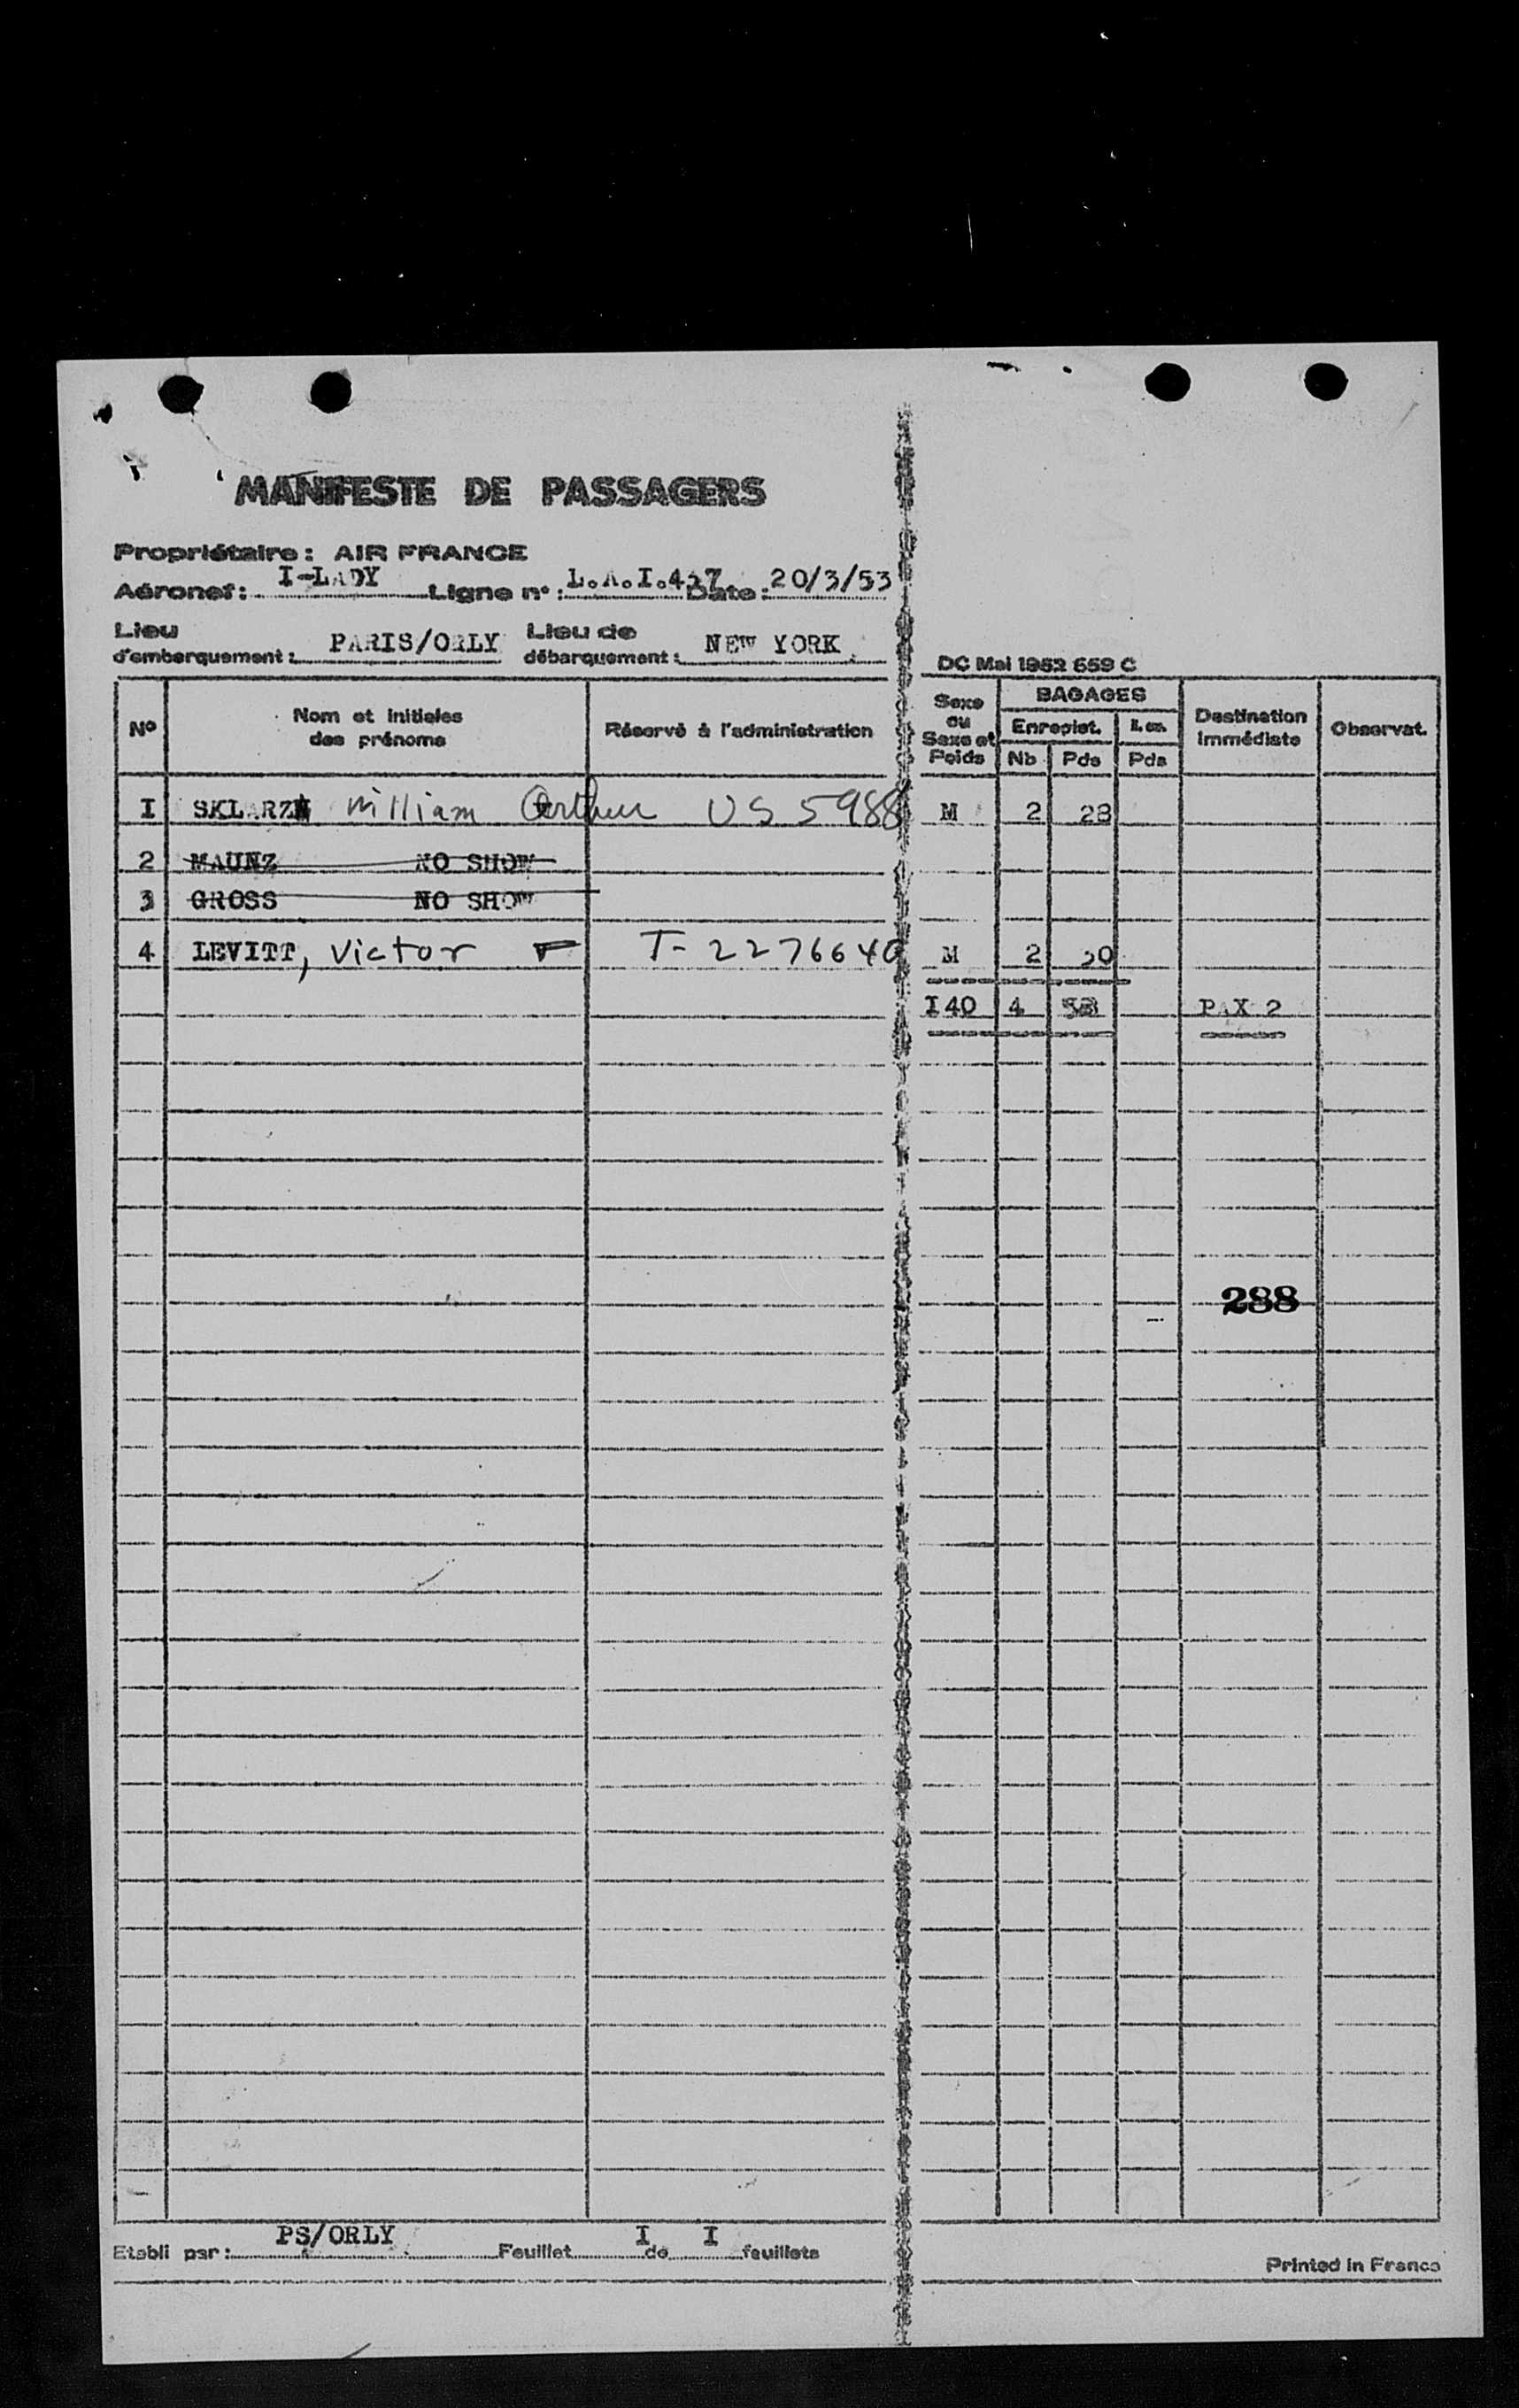 MANIFESTE DE PASSAGERS
Propriétaire : AIR FRANCE
Aéronef : I-LADY Ligne n° : L.A.I.457 Date : 20/3/53
Lieu d'embarquement : PARIS/ORLY Lieu de débarquement : NEW YORK
DC Mai 1952 659 C
N° Nom et initiales des prénoms Réservé à l'administration Sexe ou Sexe et Poids BAGAGES Enregist. Nb Pds Pds Destination immédiate Observat.
I William Arthur US 5988 M 2 28
2 MAUNZ NO SHOW
3 GROSS NO SHOW
4 LEVITT, Victor F T-2276640 M 2 30
I40 4 58 PAX 2
288
Etabli par : PS/ORLY Feuillet I de I feuillets
Printed in France